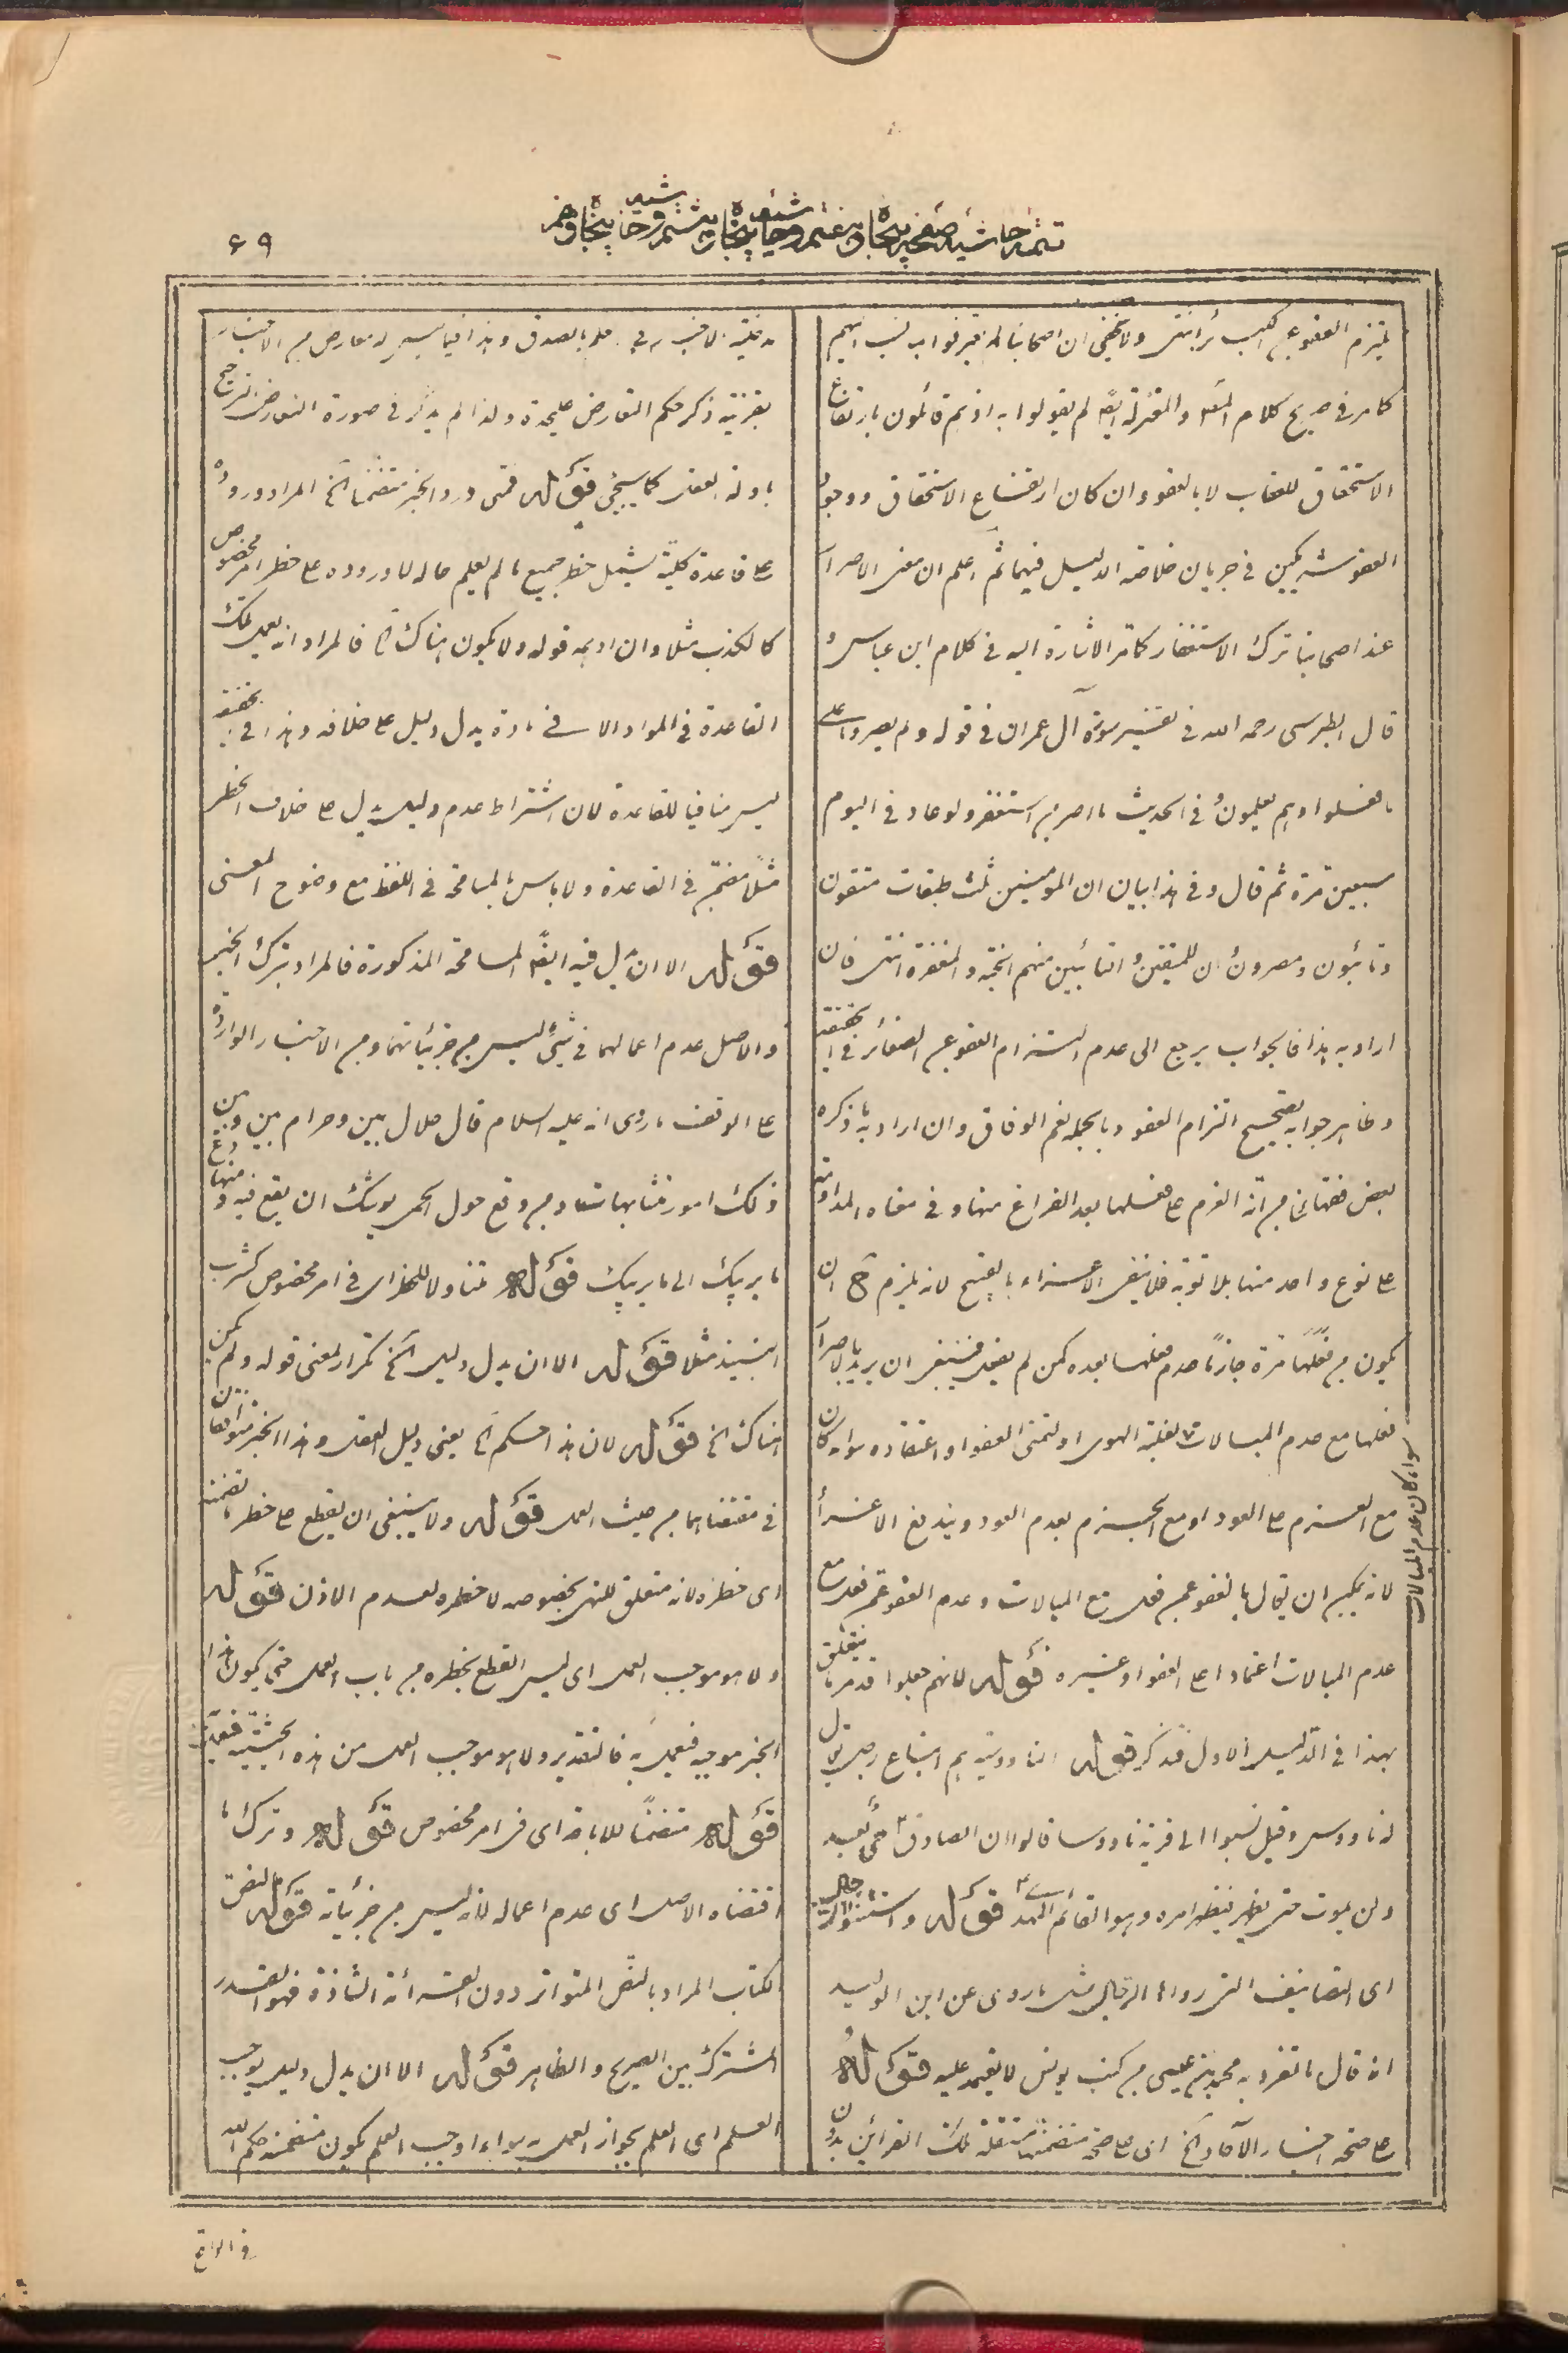 تتمه حاشيه صفحه پنجاه و هفتم و حاشيه پنجاه و هشتم و حاشيه پنجاه و نهم
۶۹
يلتزم العفو عن الكبائر انتهى ولا يخفى ان اصحابنا لم يعترفوا بما نسب اليهم
كما مر فى صريح كلام المص والمعتزلة ايضا لم يقولوا به اذ هم قائلون بارتفاع
الاستحقاق للعقاب لا بالعفو وان كان ارتفاع الاستحقاق ووجوب
العفو شريكين فى جريان خلاصة الدليل فيهما ثم اعلم ان معنى الاصرار
عند اصحابنا ترك الاستغفار كما مر الاشارة اليه فى كلام ابن عباس و
قال الطبرسى رحمه الله فى تفسير سورة آل عمران فى قوله ولم يصروا على
ما فعلوا وهم يعلمون وفى الحديث ما اصر من استغفر ولو عاد فى اليوم
سبعين مرة ثم قال وفى هذا بيان ان المؤمنين ثلث طبقات متقون
وتائبون ومصرون وان للمتقين والتائبين منهم الجنة والمغفرة انتهى فان
اراد به هذا فالجواب يرجع الى عدم التزام العفو عن الصغائر فى الحقيقة
وظاهر جوابه تصحيح التزام العفو وبالجملة نعم الوفاق وان اراد به ما ذكره
بعض فقهائنا من انه العزم على فعلها بعد الفراغ منها وفى معناه المداومة
على نوع واحد منها بلا توبة فلا ينفى الاغراء بالقبيح لانه يلزم ح ان
يكون من فعلها مرة جازما عدم فعلها بعده كمن لم يفعل فينبغى ان يريد بالاصرار
فعلها مع عدم المبالات لغلبة الهوى او لتمنى العفو او اعتقاده سواء كان
مع العزم على العود او مع الجزم بعدم العود ويندفع الاغراء
لانه يمكن ان يقال بالعفو عمن فعل مع المبالات وعدم العفو عمن فعل مع
عدم المبالات اعتمادا على العفو او غيره قوله لانهم جعلوا قد مر ما يتعلق
بهذا فى الدليل الاول فتذكر قوله الناووسية هم اتباع رجل يقال
له ناووس وقيل نسبوا الى قرية ناووسا قالوا ان الصادق ع حى بعد
ولن يموت حتى يظهر فيظهر امره وهو القائم المهدى قوله واستثنوا الرجال
اى التصانيف التى رواها الرجال مثل ما روى عن ابن الوليد
انه قال ما تفرد به محمد بن عيسى من كتب يونس لا يعتمد عليه قوله
على صحة اخبار الآحاد الخ اى على صحة متضمنها مستقلة تلك القرائن بدون
سواء كان عدم المبالات
بقرينة ذكر حكم التعارض عليحدة ولذا لم يذكر فى صورة التعارض الترجيح
بادلة العقل كما سيجئ قوله فمتى ورد الخبر متضمنا الخ المراد وروده
على قاعدة كلية يشمل حظر جميع ما لم يعلم حاله لا وروده على حظر امر مخصوص
كالكذب مثلا وان اوهمه قوله ولا يكون هناك الخ فالمراد انه يعمل بتلك
القاعدة فى المواد الا فى مادة يدل دليل على خلافه وهذا فى الحقيقة
ليس منافيا للقاعدة لان اشتراط عدم دليل يدل على خلاف الحظر
مثلا مضمر فى القاعدة ولا باس بالمسامحة فى اللفظ مع وضوح المعنى
قوله الا ان يدل فيه ايضا المسامحة المذكورة فالمراد بترك الخبر
والاصل عدم اعمالهما فى شئ ليس من جزئياتهما ومن الاخبار الواردة
على الوقف ما روى انه عليه السلام قال حلال بين وحرام بين وبين
ذلك امور متشابهات ومن وقع حول الحمى يوشك ان يقع فيه ومنها دع
ما يريبك الى ما لا يريبك قوله متناولا للحظر اى فى امر مخصوص كشرب
النبيذ مثلا قوله الا ان يدل دليل الخ تكرار لمعنى قوله ولم يكن
هناك الخ قوله لان هذا حكم الخ يعنى دليل العقل وهذا الخبر متوافقان
فى مقتضاهما من حيث العمل قوله ولا ينبغى ان يقطع على حظر ما تضمنه
اى حظره لانه متعلق للنهى بخصوصه لا حظره لعدم الاذن قوله
ولا هو موجب العمل اى ليس القطع بحظره من باب العمل حتى يكون هذا
الخبر موجبه فيعمل به فالتقدير ولا هو موجب العمل من هذه الحيثية
قوله متضمنا للاباحة اى فى امر مخصوص قوله وترك ما
اقتضاه الاصل اى عدم اعماله لانه ليس من جزئياته قوله لنص
الكتاب المراد بالنص المتواتر دون القرائة الشاذة فهو القدر
المشترك بين الصريح والظاهر قوله الا ان يدل دليل يوجب
العلم اى العلم بجواز العمل به سواء اوجب العلم بكون متضمنه حكم الله
فى الواقع